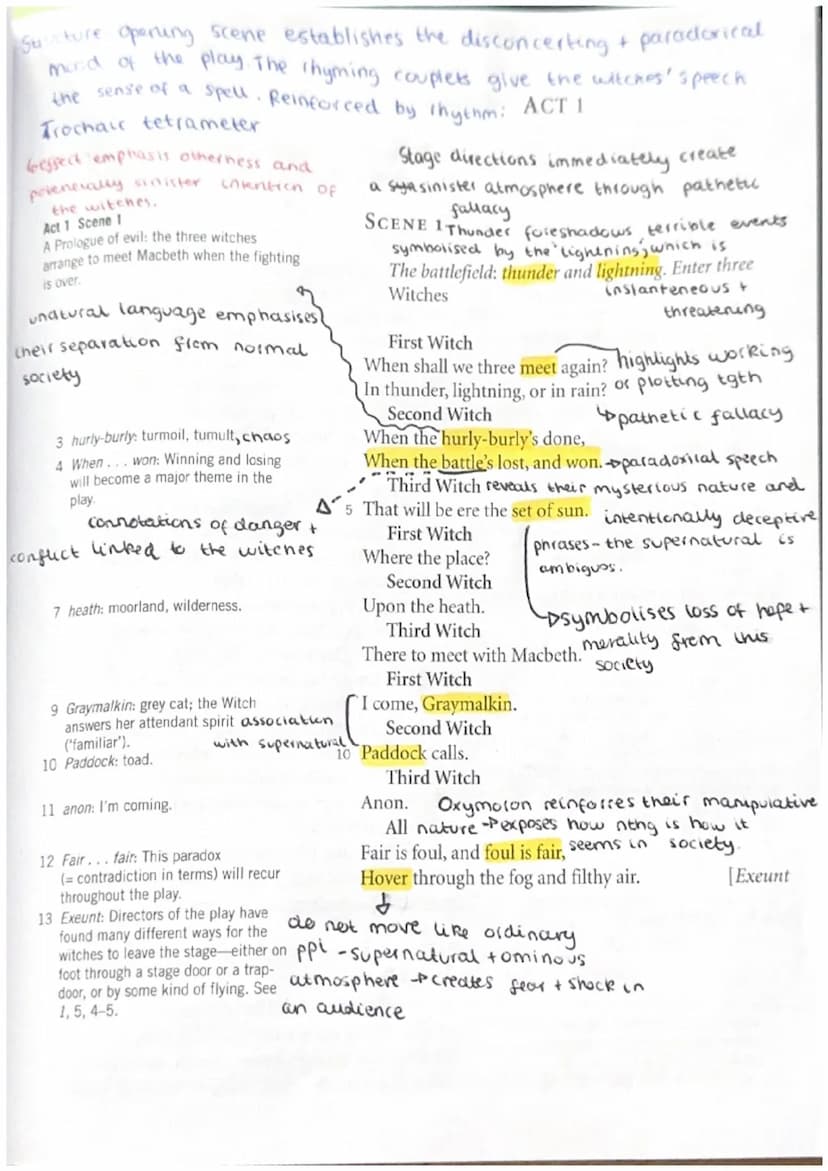 Structure opening scene establishes the disconcerting + paradorical
mood of the play. The rhyming couplets give the witches' speech
the sense of a spell. Reinforced by rhythm:
Trochaic tetrameter
ACT 1
↳effect emphasis otherness and
potentially sinister intention of
the witches.
Stage directions immediately create
a sinister atmosphere through pathetic
fallacy
Act 1 Scene 1
A Prologue of evil: the three witches
arrange to meet Macbeth when the fighting
is over.
SCENE 1
Thunder foreshadows terrible events
symbolised by the 'lightening', which is
instanteneous +
threatening
The battlefield: thunder and lightning. Enter three
Witches
unatural language emphasises
their separation from normal
society
First Witch
When shall we three meet again?
In thunder, lightning, or in rain?
highlights working
or plotting tgth
↳pathetic fallacy
Second Witch
3 hurly-burly: turmoil, tumult, chaos
When the hurly-burly's done,
4 When . . . won: Winning and losing
will become a major theme in the
play.
When the battle's lost, and won. →paradoxilal speech
Third Witch reveals their mysterious nature and
5 That will be ere the set of sun. intentionally deceptive
phrases - the supernatural is
ambiguos.
connotations of danger +
conflict linked to the witches
First Witch
Where the place?
Second Witch
7 heath: moorland, wilderness.
Upon the heath.
↳symbolises loss of hope +
merality from this
society
Third Witch
There to meet with Macbeth.
First Witch
9 Graymalkin: grey cat; the Witch
answers her attendant spirit
('familiar').
association
with supernatural
I come, Graymalkin.
Second Witch
10 Paddock: toad.
10 Paddock calls.
Third Witch
11 anon: I'm coming.
Anon.
Oxymoron reinforces their manipulative
nature →exposes how nthng is how it
seems in society.
All
12 Fair . . . fair: This paradox
(= contradiction in terms) will recur
throughout the play.
Fair is foul, and foul is fair,
Hover through the fog and filthy air.
[Exeunt
13 Exeunt: Directors of the play have
found many different ways for the
witches to leave the stage—either on
foot through a stage door or a trap-
door, or by some kind of flying. See
1, 5, 4–5.
do not move like ordinary
ppl - supernatural + ominous
atmosphere →creates fear + shock in
an audience